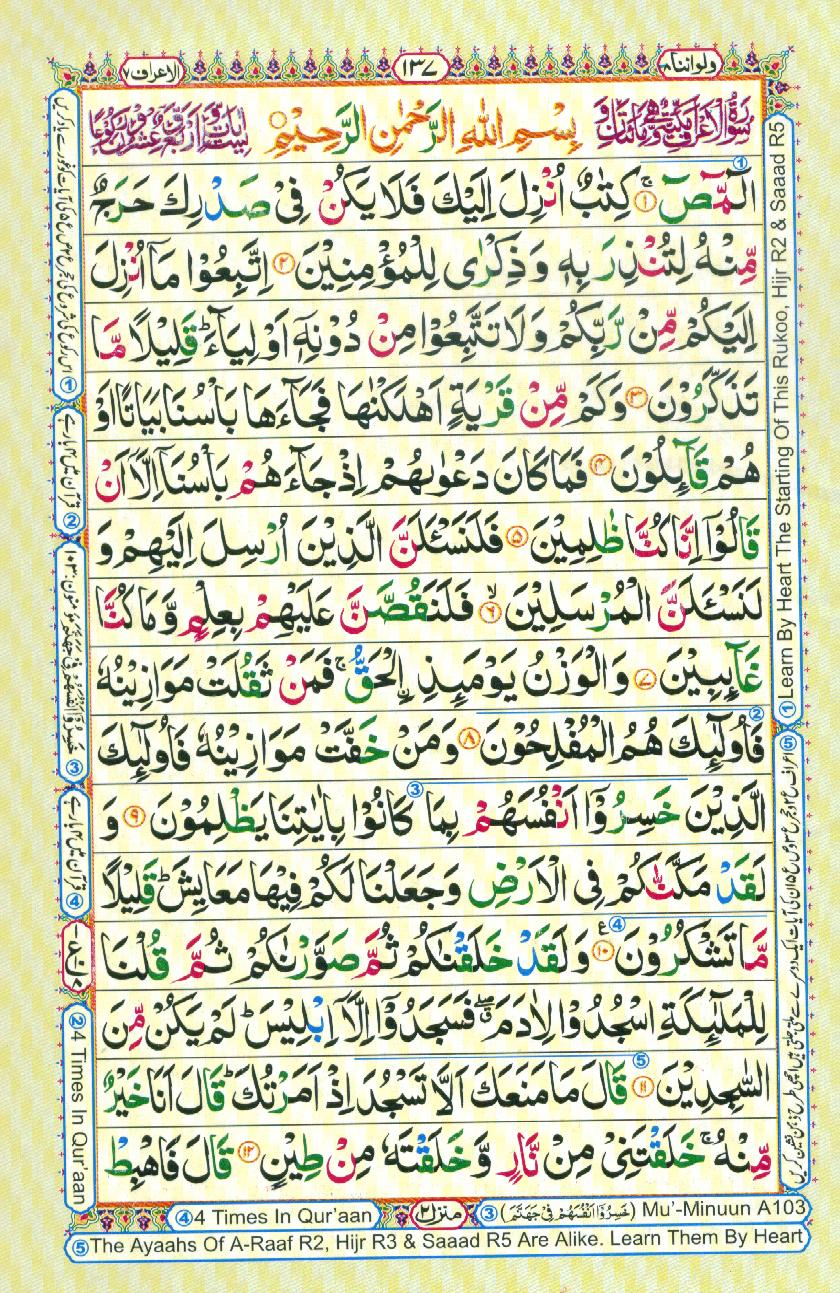 ولواننا ٨
١٣٧
الاعراف ٧
سُوْرَةُ الْاَعْرَافِ مَكِّيَّةٌ وَّهِيَ مِائَتَانِ وَّ
بِسْمِ اللّٰهِ الرَّحْمٰنِ الرَّحِيْمِ
الٓمّٓصٓ ۚ﴿۱﴾ كِتٰبٌ اُنْزِلَ اِلَيْكَ فَلَا يَكُنْ فِىْ صَدْرِكَ حَرَجٌ
مِّنْهُ لِتُنْذِرَ بِهٖ وَ ذِكْرٰى لِلْمُؤْمِنِيْنَ ﴿۲﴾ اِتَّبِعُوْا مَاۤ اُنْزِلَ
اِلَيْكُمْ مِّنْ رَّبِّكُمْ وَ لَا تَتَّبِعُوْا مِنْ دُوْنِهٖۤ اَوْلِيَآءَ ؕ قَلِيْلًا مَّا
تَذَكَّرُوْنَ ﴿۳﴾ وَ كَمْ مِّنْ قَرْيَةٍ اَهْلَكْنٰهَا فَجَآءَهَا بَاْسُنَا بَيَاتًا اَوْ
هُمْ قَآئِلُوْنَ ﴿۴﴾ فَمَا كَانَ دَعْوٰىهُمْ اِذْ جَآءَهُمْ بَاْسُنَاۤ اِلَّاۤ اَنْ
قَالُوْۤا اِنَّا كُنَّا ظٰلِمِيْنَ ﴿۵﴾ فَلَنَسْـَٔلَنَّ الَّذِيْنَ اُرْسِلَ اِلَيْهِمْ وَ
لَنَسْـَٔلَنَّ الْمُرْسَلِيْنَ ۙ﴿۶﴾ فَلَنَقُصَّنَّ عَلَيْهِمْ بِعِلْمٍ وَّ مَا كُنَّا
غَآئِبِيْنَ ﴿۷﴾ وَ الْوَزْنُ يَوْمَئِذِ اِۨلْحَقُّ ۚ فَمَنْ ثَقُلَتْ مَوَازِيْنُهٗ
فَاُولٰٓئِكَ هُمُ الْمُفْلِحُوْنَ ﴿۸﴾ وَ مَنْ خَفَّتْ مَوَازِيْنُهٗ فَاُولٰٓئِكَ
الَّذِيْنَ خَسِرُوْۤا اَنْفُسَهُمْ بِمَا كَانُوْا بِاٰيٰتِنَا يَظْلِمُوْنَ ﴿۹﴾ وَ
لَقَدْ مَكَّنّٰكُمْ فِى الْاَرْضِ وَ جَعَلْنَا لَكُمْ فِيْهَا مَعَايِشَ ؕ قَلِيْلًا
مَّا تَشْكُرُوْنَ ﴿۱۰﴾ وَ لَقَدْ خَلَقْنٰكُمْ ثُمَّ صَوَّرْنٰكُمْ ثُمَّ قُلْنَا
لِلْمَلٰٓئِكَةِ اسْجُدُوْا لِاٰدَمَ ۖۗ فَسَجَدُوْۤا اِلَّاۤ اِبْلِيْسَ ؕ لَمْ يَكُنْ مِّنَ
السّٰجِدِيْنَ ﴿۱۱﴾ قَالَ مَا مَنَعَكَ اَلَّا تَسْجُدَ اِذْ اَمَرْتُكَ ؕ قَالَ اَنَا خَيْرٌ
مِّنْهُ ۚ خَلَقْتَنِىْ مِنْ نَّارٍ وَّ خَلَقْتَهٗ مِنْ طِيْنٍ ﴿۱۲﴾ قَالَ فَاهْبِطْ
① Learn By Heart The Starting Of This Rukoo, Hijr R2 & Saaad R5
② قرآن میں ۴ بار ہے
④ قرآن میں ۴ بار ہے
② 4 Times In Qur'aan
④ 4 Times In Qur'aan
منزل ٢
③ (خَسِرُوْۤا اَنْفُسَهُمْ فِيْ جَهَنَّمَ) Mu'-Minuun A103
⑤ The Ayaahs Of A-Raaf R2, Hijr R3 & Saaad R5 Are Alike. Learn Them By Heart